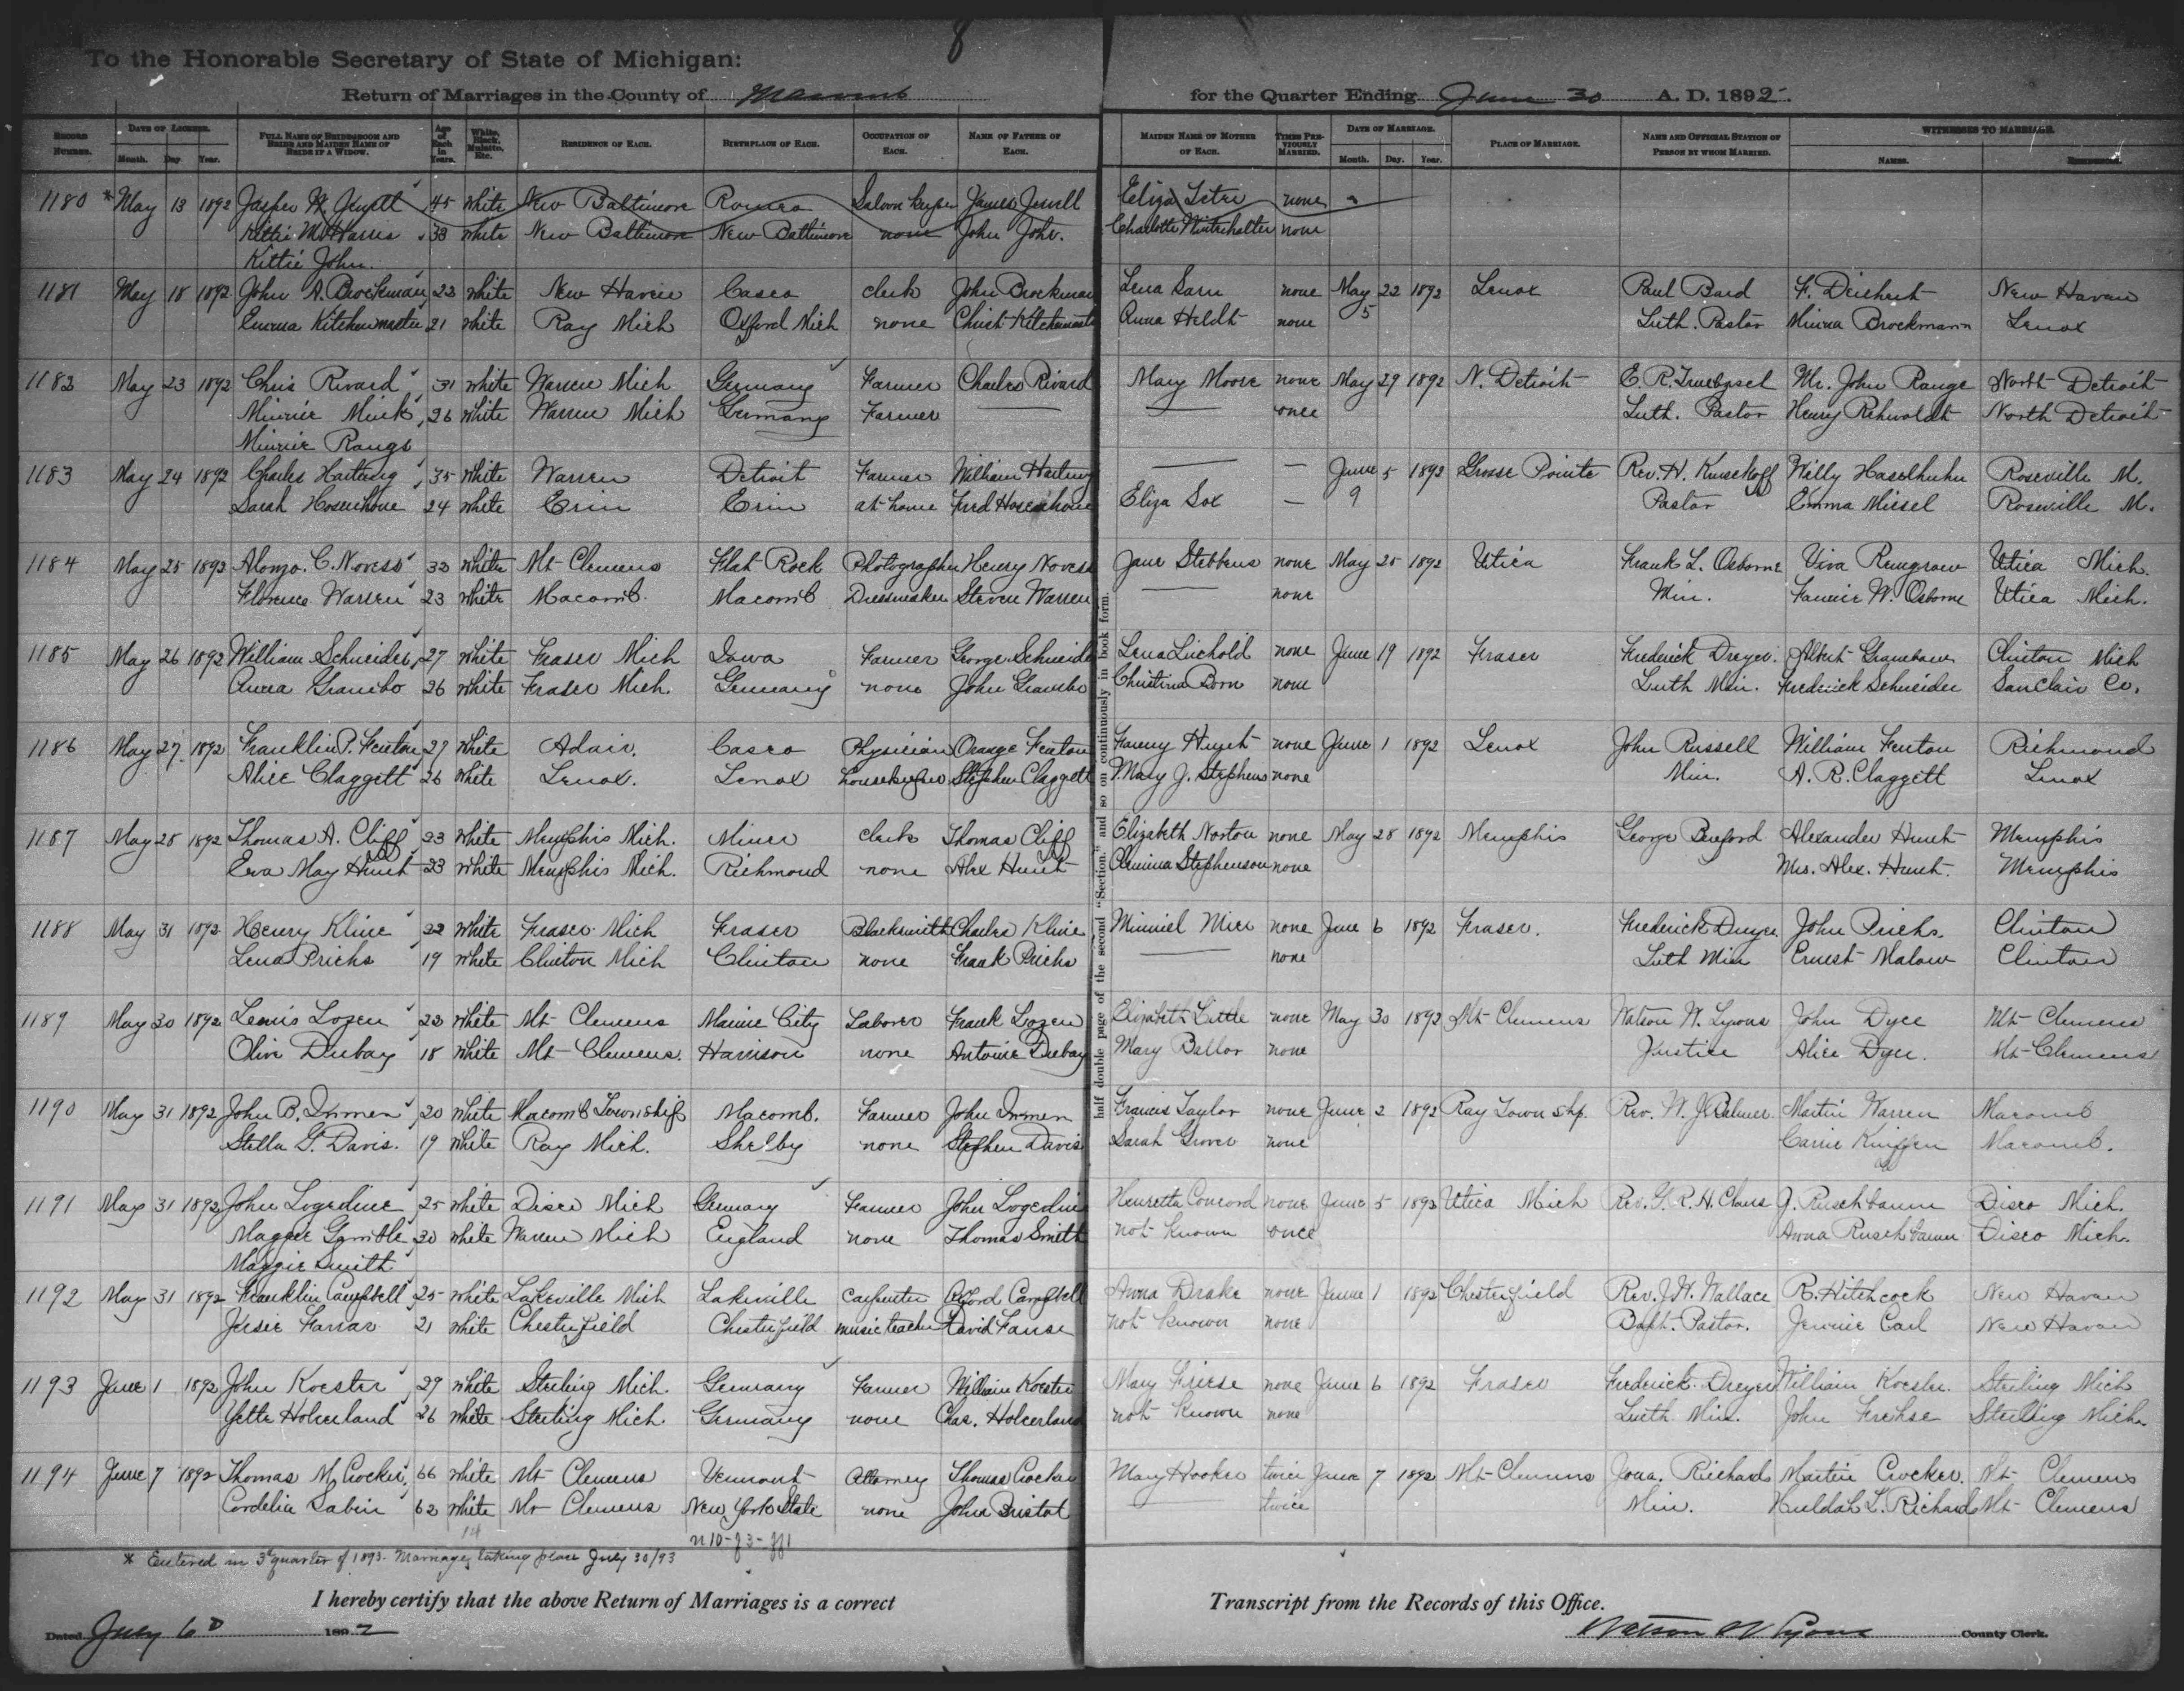 8
To the Honorable Secretary of State of Michigan:
Return of Marriages in the County of Macomb for the Quarter Ending June 30 A. D. 1892.
RECORD NUMBER. DATE OF LICENSE. Month. Day Year. FULL NAME OF BRIDEGROOM AND BRIDE AND MAIDEN NAME OF BRIDE IF A WIDOW. Age of Each in Years. White, Black, Mulatto, Etc. RESIDENCE OF EACH. BIRTHPLACE OF EACH. OCCUPATION OF EACH. NAME OF FATHER OF EACH. MAIDEN NAME OF MOTHER OF EACH. TIMES PREVIOUSLY MARRIED. DATE OF MARRIAGE. Month. Day. Year. PLACE OF MARRIAGE. NAME AND OFFICIAL STATION OF PERSON BY WHOM MARRIED. WITNESSES TO MARRIAGE. NAMES. RESIDENCE.
1180 * May 13 1892 Jasper W Jewell 45 white New Baltimore Romeo Saloon keeper James Jewell Eliza Leter none
Kittie M. Harris 33 white New Baltimore New Baltimore none John John. Charlotte Winterhalter none
Kittie John.
1181 May 18 1892 John A. Brockman 23 white New Haven Casco clerk John Brockman Lena Sarn none May 22 1892 Lenox Paul Bard F. Deichert New Haven
Emma Kitchenmaster 21 white Ray Mich Oxford Mich none Christ Kitchenmaster Anna Heldt none 5 Luth. Pastor Minna Brockmann Lenox
1182 May 23 1892 Chris Rivard 31 white Warren Mich Germany Farmer Charles Rivard Mary Moore none May 29 1892 N. Detroit E. R. Truebgsel Mr. John Range North Detroit
Minnie Mink 26 white Warren Mich Germany Farmer — — once Luth. Pastor Henry Rehwoldt North Detroit
Minnie Range
1183 May 24 1892 Charles Hartung 35 white Warren Detroit Farmer William Hartung — — June 5 1892 Grosse Pointe Rev. H. Kuschoff Willy Haselhuhn Roseville M.
Sarah Hosenhoue 24 white Erin Erin at home Fred Hosenhoue Eliza Sox — 9 Pastor Emma Miesel Roseville M.
1184 May 25 1892 Alonzo. C. Novess 33 white Mt Clemens Flat Rock Photographer Henry Novess Jane Stebbens none May 25 1892 Utica Frank L. Osborne Viva Remgrow Utica Mich.
Florence Warren 23 white Macomb. Macomb Dressmaker Steven Warren — none Min. Fannie W. Osborne Utica Mich.
1185 May 26 1892 William Schneider 27 white Fraser Mich Iowa Farmer George Schneider Lena Luchold none June 19 1892 Fraser Frederick Dreyer. Albert Granebaw Clinton Mich
Anna Grambo 26 white Fraser Mich. Germany none John Grambo Christina Born none Luth Min. Frederick Schneider SanClair Co.
1186 May 27 1892 Franklin P. Fenton 27 white Adair. Casco Physician Orange Fenton Fanny Hunt none June 1 1892 Lenox John Russell William Fenton Richmond
Alice Claggett 26 white Lenox. Lenox housekeeper Stephen Claggett Mary J. Stephens none Min. A. R. Claggett Lenox
1187 May 28 1892 Thomas A. Cliff 23 white Memphis Mich. Miner clerk Thomas Cliff Elizabeth Norton none May 28 1892 Memphis George Benford Alexander Hunt Memphis
Eva May Hunt 23 white Memphis Mich. Richmond none Alex Hunt Clemina Stephenson none Mrs. Alex. Hunt. Memphis
1188 May 31 1892 Henry Kline 22 white Fraser Mich Fraser Blacksmith Charles Kline Minniel Mier none June 6 1892 Fraser. Frederick Dreyer John Priehs. Clinton
Lena Priehs 19 white Clinton Mich Clinton none Frank Priehs — none Luth Min Ernest Malow Clinton
1189 May 30 1892 Lewis Lozen 22 white Mt Clemens Marine City Laborer Frank Lozen Elizabeth Little none May 30 1892 Mt Clemens Watson W. Lyons John Dyce Mt Clemens
Olive Dubay 18 white Mt Clemens. Harrison none Antoine Dubay Mary Ballor none Justice Alice Dyer. Mt Clemens
1190 May 31 1892 John B. Inmen 20 white Macomb Township Macomb. Farmer John Inmen Francis Taylor none June 2 1892 Ray Town shp. Rev. W. J. Balmer Martin Warren Macomb
Stella G. Davis. 19 white Ray Mich. Shelby none Stephen Davis Sarah Grover none Carrie Kniffen Macomb.
1191 May 31 1892 John Logedine 25 white Disco Mich Germany Farmer John Logedine Henretta Concord none June 5 1892 Utica Mich Rev. G. R. H. Claus J. Ruschbaum Disco Mich.
Maggie Gamble 30 white Warren Mich England none Thomas Smith not known once Anna Ruschbaum Disco Mich.
Maggie Smith.
1192 May 31 1892 Franklin Campbell 25 white Lakeville Mich Lakeville Carpenter Alford Campbell Anna Drake none June 1 1892 Chesterfield Rev. J. H. Wallace R. Hitchcock New Haven
Jesie Farrar 21 white Chesterfield Chesterfield music teacher David Farrar not known none Bapt. Pastor. Jennie Carl New Haven
1193 June 1 1892 John Koester 29 white Sterling Mich. Germany Farmer William Koester Mary Friese none June 6 1892 Fraser Frederick Dreyer William Koester. Sterling Mich
Yette Holverland 26 white Sterling Mich. Germany none Chas. Holverland not known none Luth Min. John Frehse Sterling Mich.
1194 June 7 1892 Thomas M Crocker 66 white Mt Clemens Vermont Attorney Thomas Crocker Mary Hooker twice June 7 1892 Mt Clemens Jona. Richards Martin Crocker. Mt Clemens
Cordelia Sabin 62 white Mt Clemens New York State none John Bristol — twice Min. Huldah L. Richards Mt Clemens
14
* Entered in 3d quarter of 1893. Marriage taking place July 30/93
half double page of the second "Section," and so on continuously in book form.
I hereby certify that the above Return of Marriages is a correct Transcript from the Records of this Office.
Dated July 6th 1892 Watson W Lyons County Clerk.